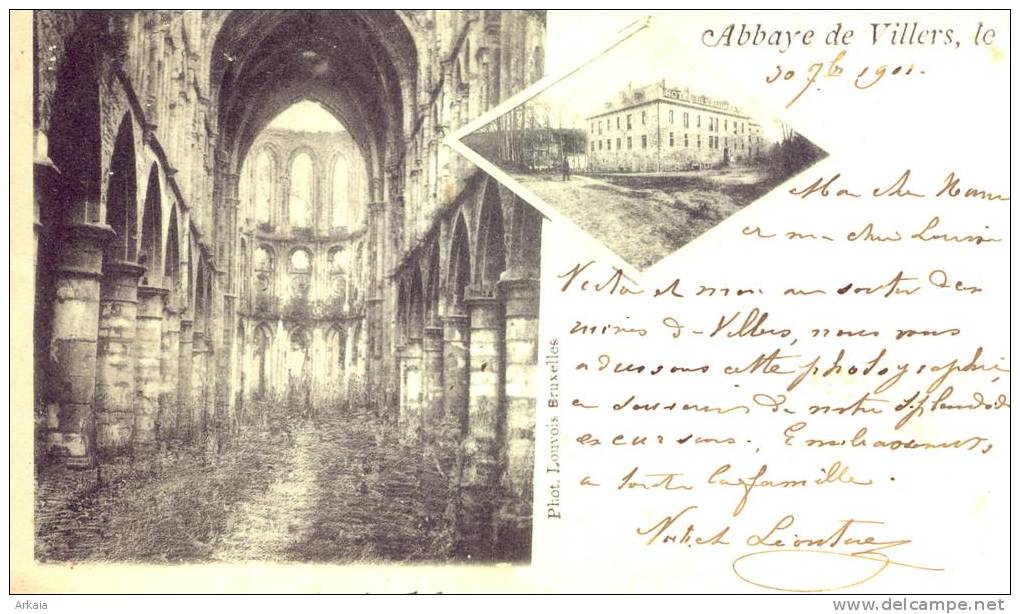 Abbaye de Villers, le
30 7b 1901.
Mon cher
et ma chère Louise
et moi au sortir des
ruines de Villers, nous vous
adressons cette photographie,
en souvenir de notre splendide
excursions. Embrassements
à toute la famille.
HOTEL
Phot. Louvois Bruxelles
Arkaia
www.delcampe.net